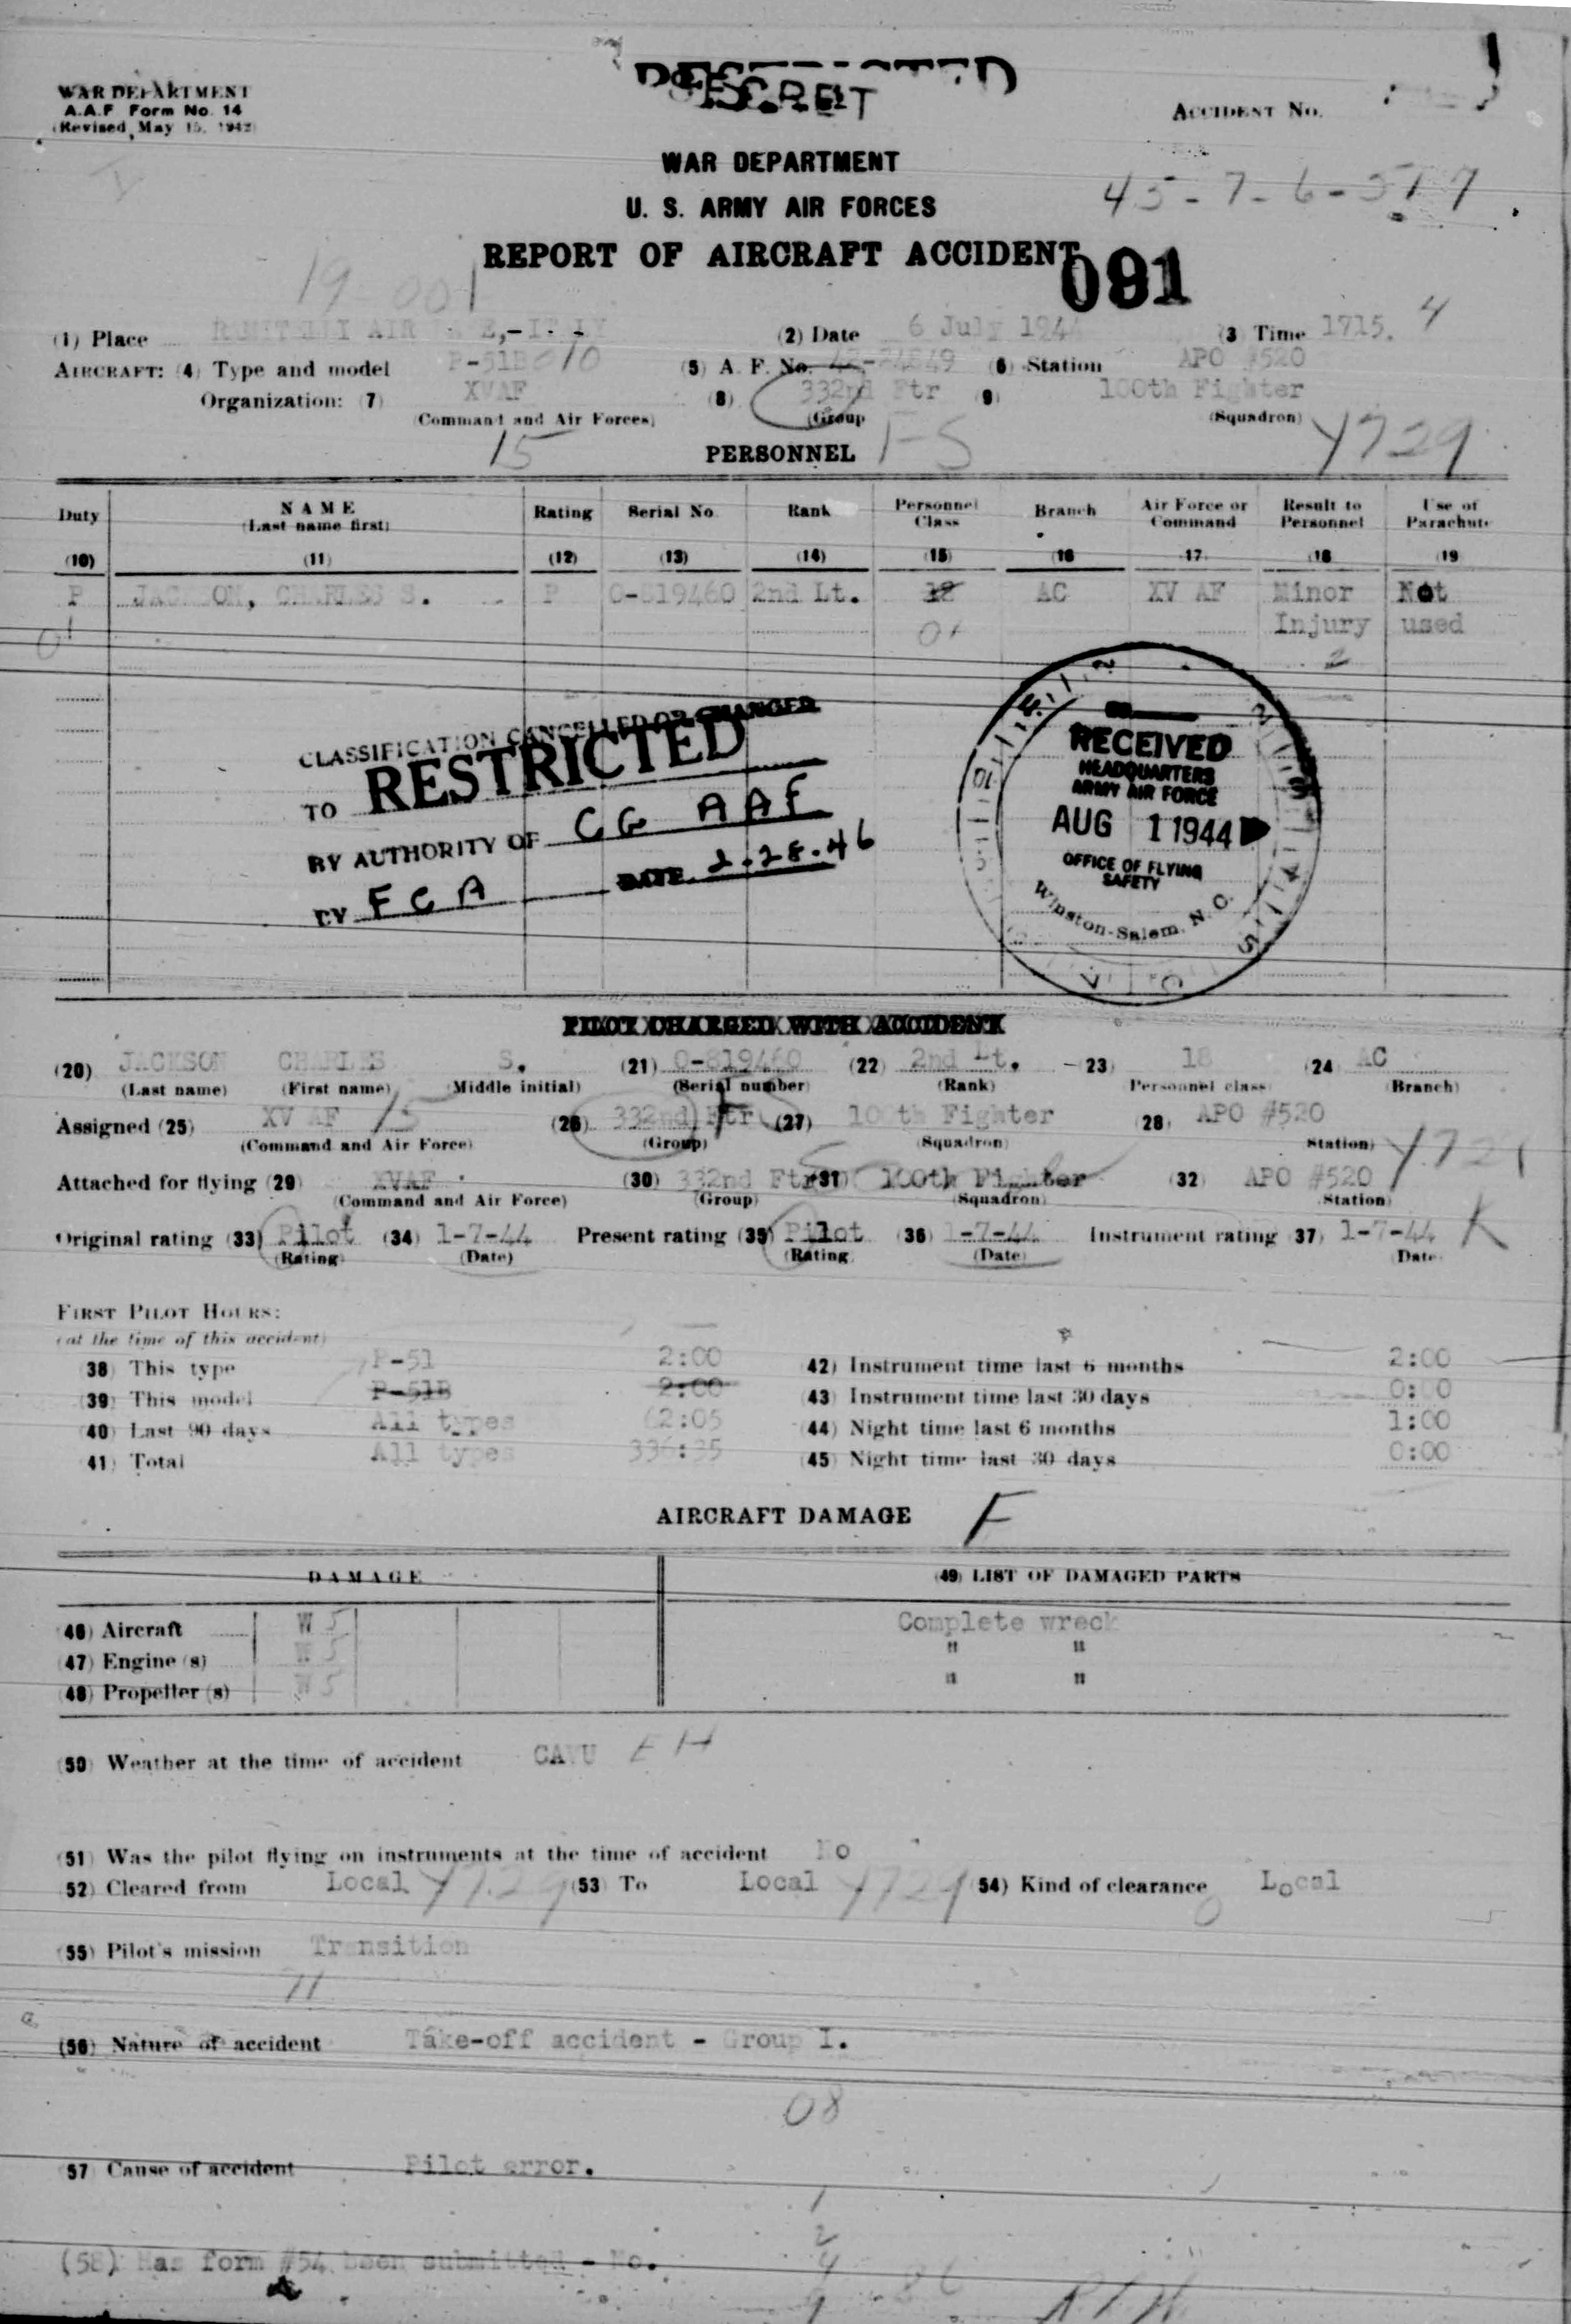 WAR DEPARTMENT
A.A.F Form No. 14
(Revised May 15, 1942)
SECRET
ACCIDENT No.
WAR DEPARTMENT
U. S. ARMY AIR FORCES
REPORT OF AIRCRAFT ACCIDENT
091
(1) Place
(2) Date 6 July 1944 (3) Time 1715. 4
AIRCRAFT: (4) Type and model P-51B 10 (5) A. F. No. (6) Station APO #520
Organization: (7) XVAF (8) 332nd Ftr (9) 100th Fighter
(Command and Air Forces) (Group (Squadron)
15 PERSONNEL 1-S 4729
Duty NAME (Last name first) Rating Serial No. Rank Personnel Class Branch Air Force or Command Result to Personnel Use of Parachute
(10) (11) (12) (13) (14) (15) (16 17 (18 (19
P JACKSON, CHARLES S. P O-819460 2nd Lt. 18 AC XV AF Minor Not
01 01 Injury used
2
CLASSIFICATION CANCELLED OR CHANGED
TO RESTRICTED
BY AUTHORITY OF CG AAF
BY FCA DATE 2-28-46
RECEIVED
HEADQUARTERS
ARMY AIR FORCE
AUG 1 1944
OFFICE OF FLYING
SAFETY
Winston-Salem, N. C.
PILOT CHARGED WITH ACCIDENT
(20) JACKSON CHARLES S. (21) O-819460 (22) 2nd Lt. (23) 18 (24 AC
(Last name) (First name) Middle initial) (Serial number) (Rank) Personnel class (Branch)
Assigned (25) XV AF 15 (26) 332nd Ftr (27) 100th Fighter (28) APO #520
(Command and Air Force) (Group) (Squadron) Station)
Attached for flying (29 XVAF (30) 332nd Ftr (31) 100th Fighter (32) APO #520
(Command and Air Force) (Group) (Squadron) (Station)
Original rating (33) Pilot (34) 1-7-44 Present rating (35) Pilot (36) 1-7-44 Instrument rating (37) 1-7-44 K
(Rating) (Date) (Rating (Date) (Date
FIRST PILOT HOURS:
(at the time of this accident)
38) This type P-51 2:00 (42) Instrument time last 6 months 2:00
(39) This model P-51B 2:00 (43) Instrument time last 30 days 0:00
(40) Last 90 days All types 62:05 (44) Night time last 6 months 1:00
(41) Total All types (45) Night time last 30 days 0:00
AIRCRAFT DAMAGE F
DAMAGE (49) LIST OF DAMAGED PARTS
(46) Aircraft W 5 Complete wreck
(47) Engine (s) W 5 " "
(48) Propeller (s) W 5 " "
(50) Weather at the time of accident CAVU
(51) Was the pilot flying on instruments at the time of accident No
52) Cleared from Local 4729 (53) To Local 4729 (54) Kind of clearance Local
0
(55) Pilot's mission Transition
11
(56) Nature of accident Take-off accident - Group I.
08
57) Cause of accident Pilot error.
1
2
4
(58) Has form #54 been submitted - No.